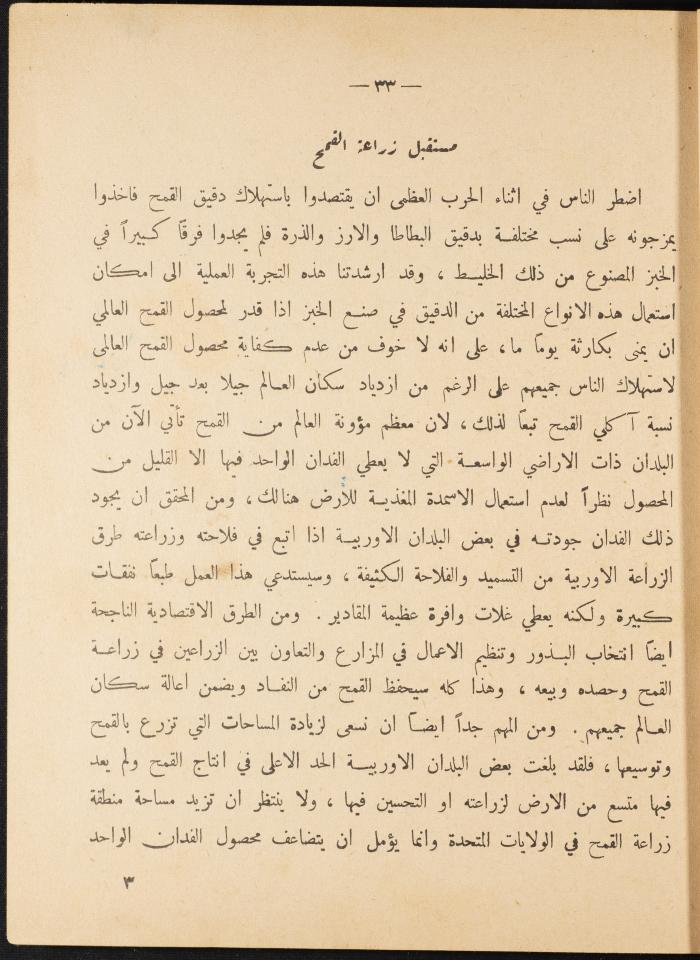 — ٣٣ —
مستقبل زراعة القمح
اضطر الناس في اثناء الحرب العظمى ان يقتصدوا باستهلاك دقيق القمح فاخذوا
يمزجونه على نسب مختلفة بدقيق البطاطا والارز والذرة فلم يجدوا فرقاً كبيراً في
الخبز المصنوع من ذلك الخليط ، وقد ارشدتنا هذه التجربة العملية الى امكان
استعمال هذه الانواع المختلفة من الدقيق في صنع الخبز اذا قدر لمحصول القمح العالمي
ان يمنى بكارثة يوماً ما، على انه لا خوف من عدم كفاية محصول القمح العالمى
لاستهلاك الناس جميعهم على الرغم من ازدياد سكان العالم جيلا بعد جيل وازدياد
نسبة آكلي القمح تبعاً لذلك، لان معظم مؤونة العالم من القمح تأتي الآن من
البلدان ذات الاراضي الواسعة التي لا يعطي الفدان الواحد فيها الا القليل من
المحصول نظراً لعدم استعمال الاسمدة المغذية للأرض هنالك، ومن المحقق ان يجود
ذلك الفدان جودته في بعض البلدان الاوربية اذا اتبع في فلاحته وزراعته طرق
الزراعة الاوربية من التسميد والفلاحة الكثيفة ، وسيستدعي هذا العمل طبعاً نفقات
كبيرة ولكنه يعطي غلات وافرة عظيمة المقادير . ومن الطرق الاقتصادية الناجحة
ايضاً انتخاب البذور وتنظيم الاعمال في المزارع والتعاون بين الزراعين في زراعة
القمح وحصده وبيعه ، وهذا كله سيحفظ القمح من النفاد ويضمن اعالة سكان
العالم جميعهم . ومن المهم جداً ايضاً ان نسعى لزيادة المساحات التي تزرع بالقمح
وتوسيعها، فلقد بلغت بعض البلدان الاوربية الحد الاعلى في انتاج القمح ولم يعد
فيها متسع من الارض لزراعته او التحسين فيها ، ولا ينتظر ان تزيد مساحة منطقة
زراعة القمح في الولايات المتحدة وانما يؤمل ان يتضاعف محصول الفدان الواحد
٣